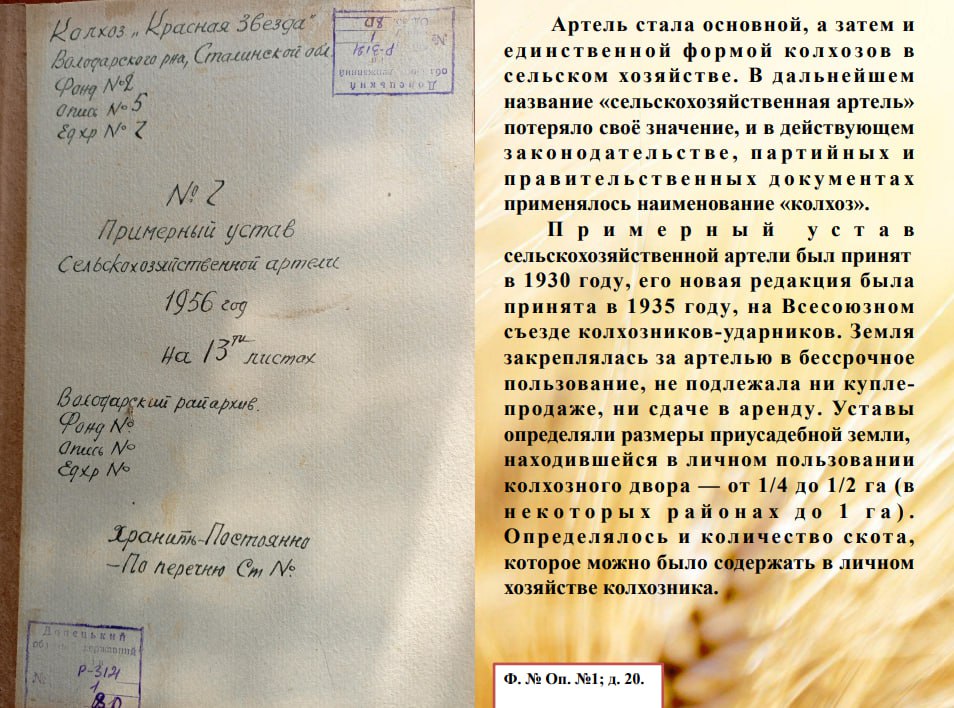 Колхоз „Красная Звезда"
Володарского р-на, Сталинской обл.
Фонд №2
опись №5
Ед хр №2
№ 2
Примерный устав
Сельскохозяйственной артели
1956 год
на 13ти листах
Володарский райархив.
Фонд №
опись №
Ед хр №
Хранить-Постоянно
-По перечню Ст №
Донецький
державний
№ Р-3121
1
80
Донецький
обл державний
№ Р-3121
1
80
Артель стала основной, а затем и
единственной формой колхозов в
сельском хозяйстве. В дальнейшем
название «сельскохозяйственная артель»
потеряло своё значение, и в действующем
законодательстве, партийных и
правительственных документах
применялось наименование «колхоз».
Примерный устав
сельскохозяйственной артели был принят
в 1930 году, его новая редакция была
принята в 1935 году, на Всесоюзном
съезде колхозников-ударников. Земля
закреплялась за артелью в бессрочное
пользование, не подлежала ни купле-
продаже, ни сдаче в аренду. Уставы
определяли размеры приусадебной земли,
находившейся в личном пользовании
колхозного двора — от 1/4 до 1/2 га (в
некоторых районах до 1 га).
Определялось и количество скота,
которое можно было содержать в личном
хозяйстве колхозника.
Ф. № Оп. №1; д. 20.